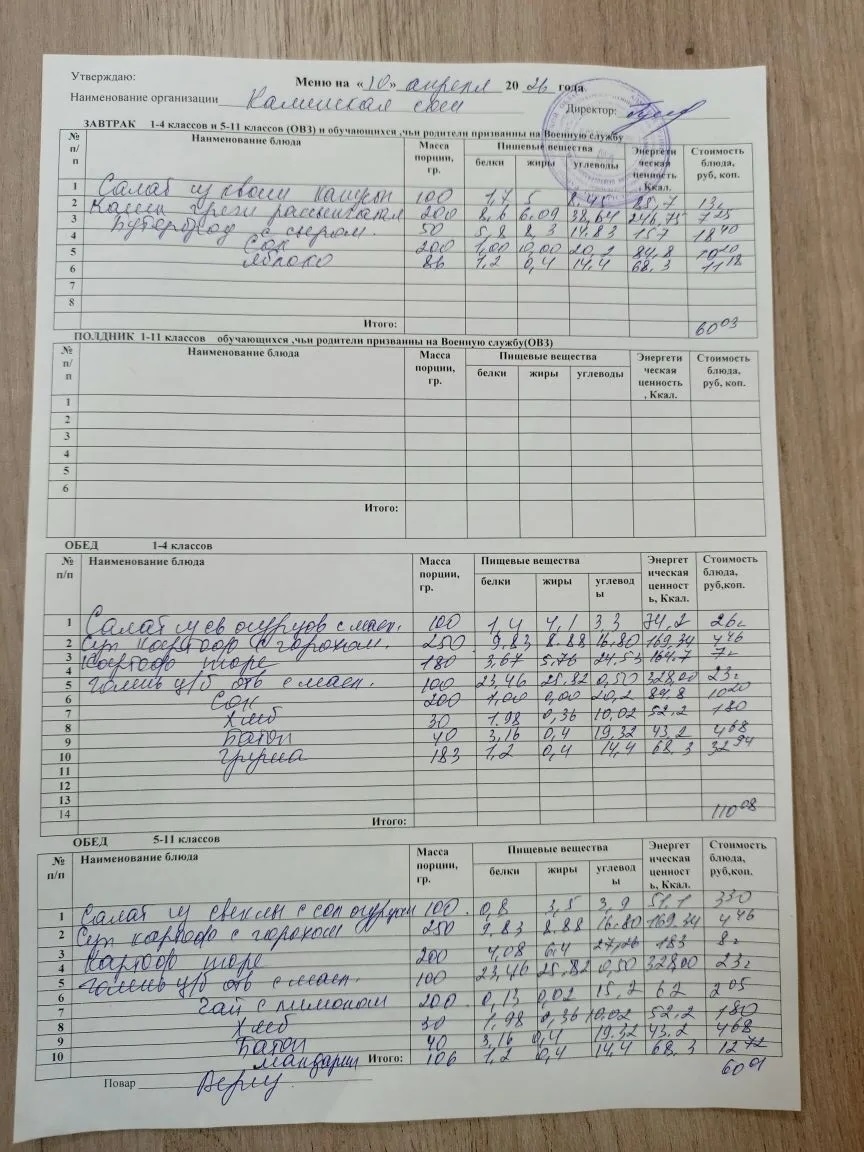 Утверждаю:
Меню на «10» апреля 2026 года
Наименование организации Каминская сош Директор:
ЗАВТРАК 1-4 классов и 5-11 классов (ОВЗ) и обучающихся ,чьи родители призванны на Военную службу
№ п/п Наименование блюда Масса порции, гр. Пищевые вещества белки жиры углеводы Энергетическая ценность, Ккал. Стоимость блюда, руб, коп.
1 Салат из квош капусты 100 1,7 5 8.45 85,7
2 Каша греч рассыпчатая 200 8,6 6.09 38,64 246,75 7 25
3 Бутерброд с сыром. 50 5,8 8,3 14.83 157 18 40
4 Сок 200 1,00 0,00 20,2 84,8 10 20
5 Яблоко 86 1,2 0,4 14,4 68,3 11 18
6
7
8
Итого: 60 03
ПОЛДНИК 1-11 классов обучающихся ,чьи родители призванны на Военную службу(ОВЗ)
№ п/п Наименование блюда Масса порции, гр. Пищевые вещества белки жиры углеводы Энергетическая ценность, Ккал. Стоимость блюда, руб, коп.
1
2
3
4
5
6
Итого:
ОБЕД 1-4 классов
№ п/п Наименование блюда Масса порции, гр. Пищевые вещества белки жиры углеводы Энергетическая ценность, Ккал. Стоимость блюда, руб,коп.
1 Салат из св огурцов с масл. 100 1,4 4,1 3,3 74,2 26
2 Суп картоф с горохом. 250 9.83 8.88 16.80 169,34 4 46
3 Картоф пюре 180 3,67 5,76 24.53 164.7 7
4 Голень ц/б отв с масл. 100 23,46 25,82 0,50 328,00 23
5 Сок 200 1,00 0,00 20,2 84.8 10 20
6 Хлеб 30 1.98 0,36 10,02 52,2 1 80
7 Батон 40 3,16 0,4 19,32 43,2 4 68
8 Груша 183 1,2 0,4 14,4 68,3 32 94
9
10
11
12
13
14
Итого: 110 08
ОБЕД 5-11 классов
№ п/п Наименование блюда Масса порции, гр. Пищевые вещества белки жиры углеводы Энергетическая ценность, Ккал. Стоимость блюда, руб,коп.
1 Салат из свеклы с сол огурцом 100 0,8 3,5 3,9 51,1 3 30
2 Суп картоф с горохом 250 9.83 8.88 16.80 169,34 4 46
3 Картоф пюре 200 4,08 6,4 27,26 183 8
4 Голень ц/б отв с масл. 100 23,46 25,82 0,50 328,00 23
5 Чай с лимоном 200 0,13 0,02 15,2 62 2 05
6 Хлеб 30 1,98 0,36 10.02 52,2 1 80
7 Батон 40 3,16 0,4 19.32 43,2 4 68
8 Мандарин 106 1,2 0,4 14,4 68,3 12 72
9
10 Итого: 60 01
Повар